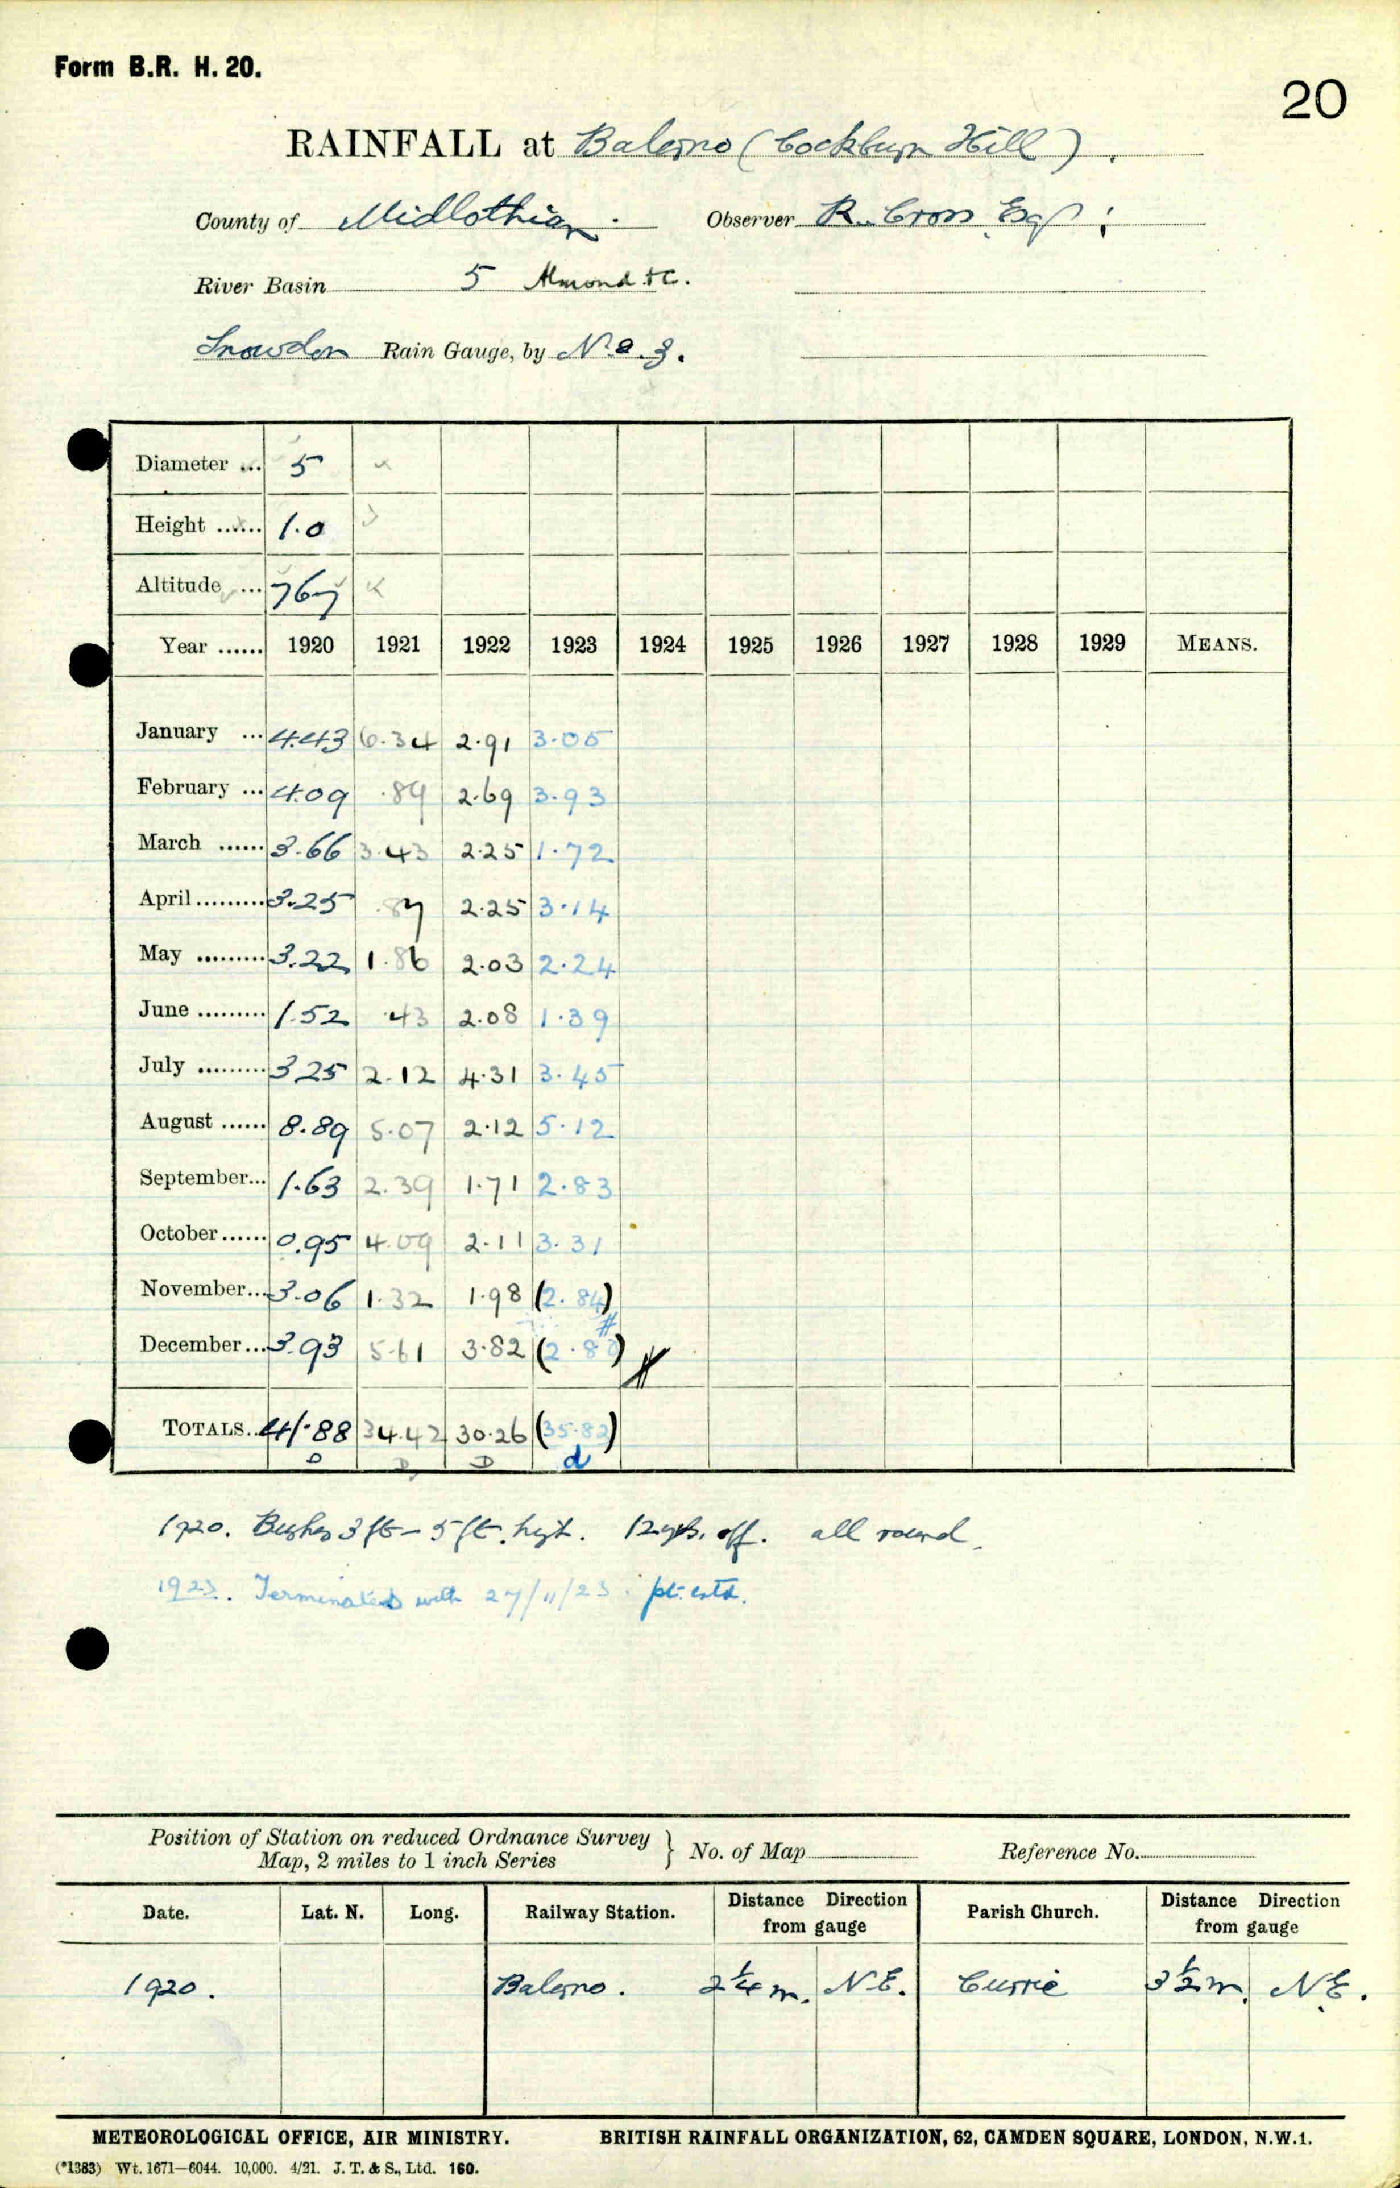 Form B.R. H. 20.
20
RAINFALL at Balerno (Cockburn Hill).
County of Midlothian. Observer R. Cross Esq;
River Basin 5 Almond &c.
Snowdon Rain Gauge, by N & Z.
Diameter ... 5
Height ...... 1.0
Altitude ... 767
Year ...... 1920 1921 1922 1923 1924 1925 1926 1927 1928 1929 MEANS.
January ... 4.43 6.34 2.91 3.05
February ... 4.09 .89 2.69 3.93
March ...... 3.66 3.43 2.25 1.72
April ......... 3.25 .87 2.25 3.14
May ......... 3.22 1.86 2.03 2.24
June ......... 1.52 .43 2.08 1.39
July ......... 3.25 2.12 4.31 3.45
August ...... 8.89 5.07 2.12 5.12
September... 1.63 2.39 1.71 2.83
October...... 0.95 4.09 2.11 3.31
November... 3.06 1.32 1.98 (2.84)
December... 3.93 5.61 3.82 (2.80)
TOTALS.. 41.88 34.42 30.26 (35.82)
D D D d
1920. Bushes 3ft – 5ft. high. 12 yds. off. all round.
1923. Terminated with 27/11/23. pt. estd.
Position of Station on reduced Ordnance Survey
Map, 2 miles to 1 inch Series } No. of Map Reference No.
Date. Lat. N. Long. Railway Station. Distance Direction from gauge Parish Church. Distance Direction from gauge
1920. Balerno. 2¼ m. N.E. Currie 3½ m. N.E.
METEOROLOGICAL OFFICE, AIR MINISTRY. BRITISH RAINFALL ORGANIZATION, 62, CAMDEN SQUARE, LONDON, N.W.1.
(*1383) Wt. 1671–6044. 10,000. 4/21. J. T. & S., Ltd. 160.